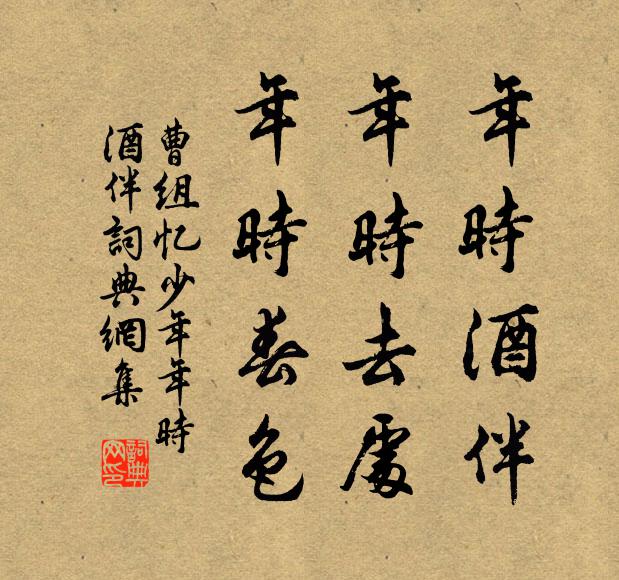 年時酒伴
年時去處
年時春色
曹組忆少年年時
酒伴詞典網集
詞典网印